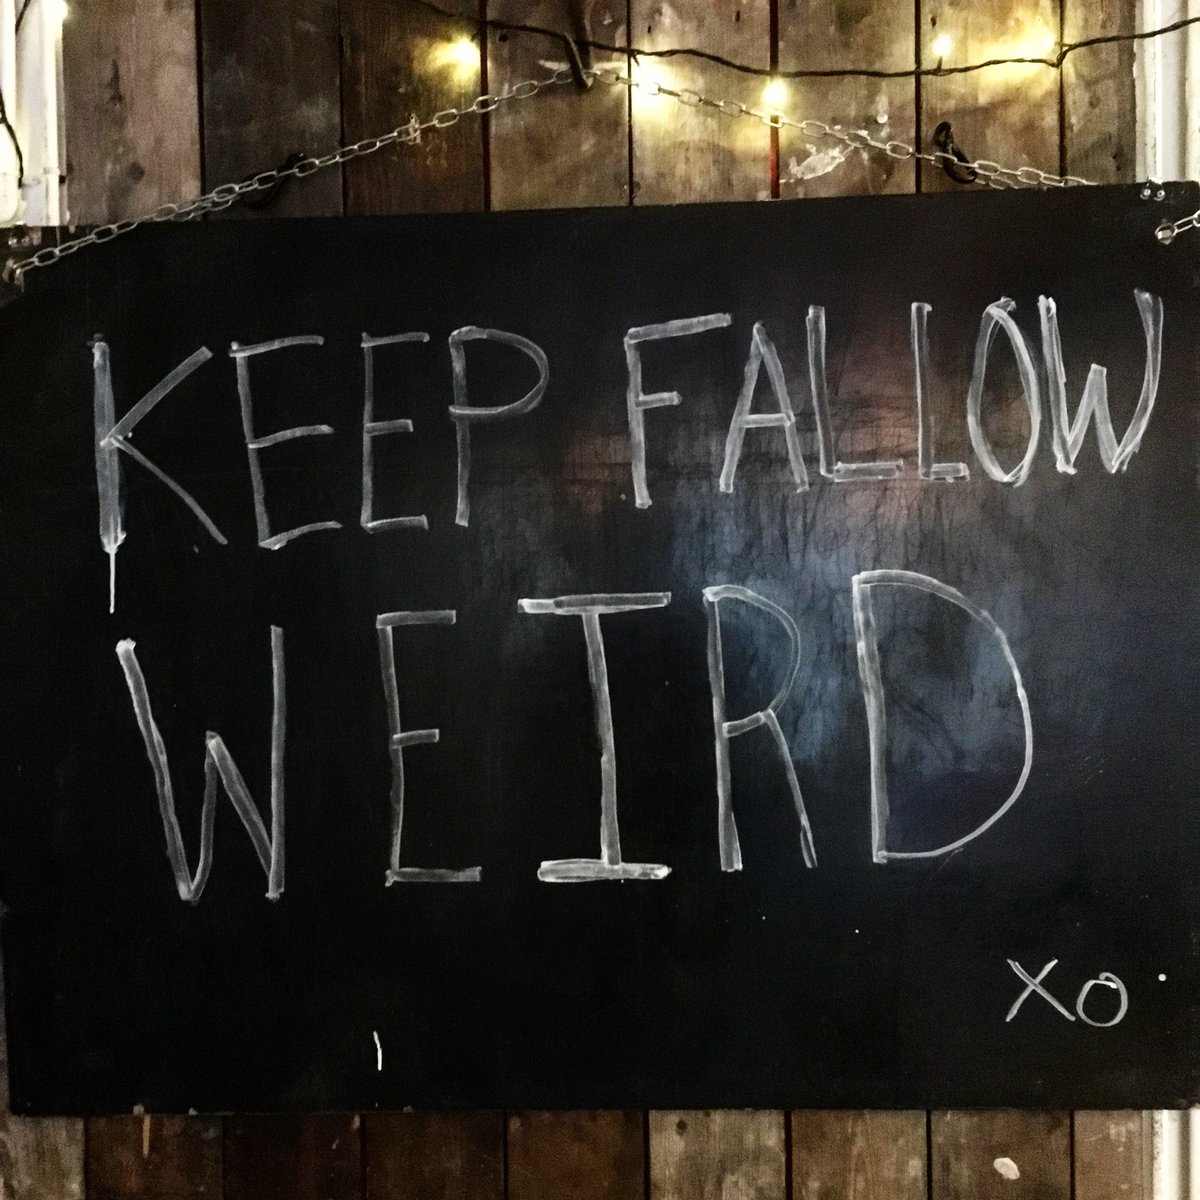 KEEP FALLOW
WEIRD
XO